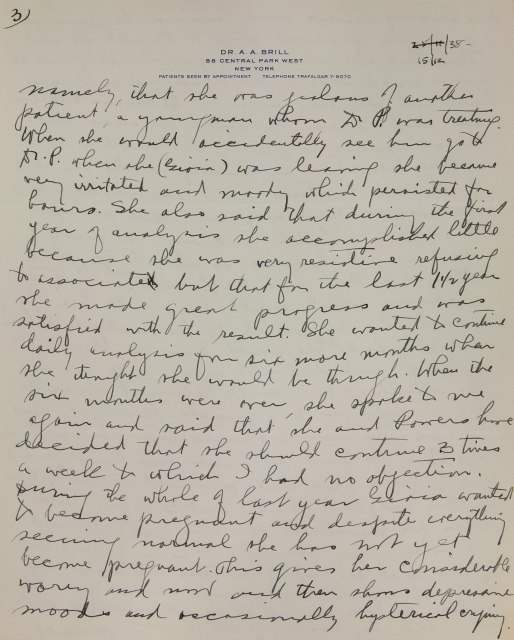 3)
DR. A. A. BRILL
88 CENTRAL PARK WEST
NEW YORK
PATIENTS SEEN BY APPOINTMENT TELEPHONE TRAFALGAR 7-8070
/38-
15/12
namely, that she was jealous of another
patient, a young man whom Dr P. was treating.
When she would accidentally see him go to
Dr. P. when she (Gioia) was leaving she became
very irritated and moody which persisted for
hours. She also said that during the first
year of analysis she accomplished little
because she was very resistive refusing
to associate but that for the last 1½ year
she made great progress and was
satisfied with the result. She wanted to continue
daily analysis for six more months when
she thought she would be through. When the
six months were over, she spoke to me
again and said that she and Powers have
decided that she should continue 3 times
a week to which I had no objection.
During the whole of last year Gioia wanted
to become pregnant and despite everything
seeming normal she has not yet
become pregnant. This gives her considerable
worry and now and then shows depressive
moods and occasionally hysterical crying.